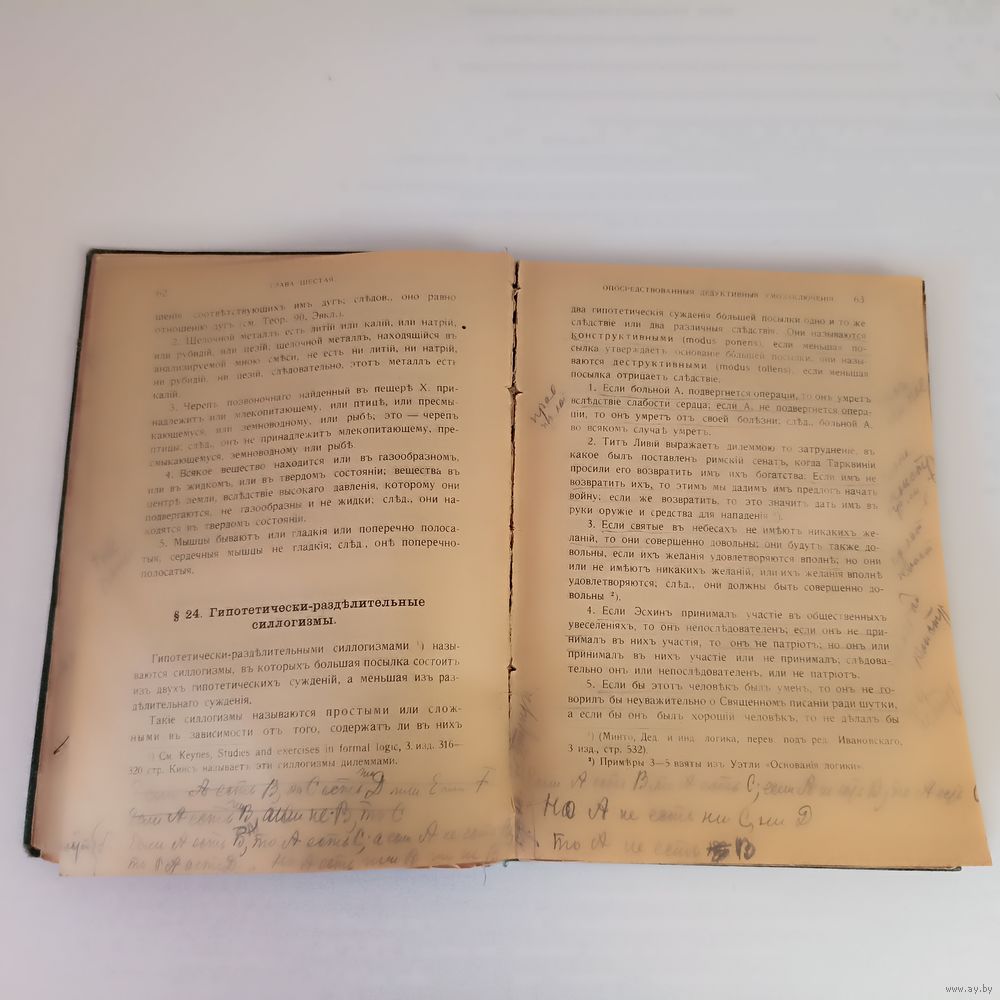 62
ГЛАВА ШЕСТАЯ.
шенію соотвѣтствующихъ имъ дугъ; слѣдов., оно равно
отношенію дугъ (см. Теор. 90, Эвкл.).
2. Щелочной металлъ есть литій или калій, или натрій,
или рубидій, или цезій, щелочной металлъ, находящійся въ
анализируемой мною смѣси, не есть ни литій, ни натрій,
ни рубидій, ни цезій, слѣдовательно, этотъ металлъ есть
калій.
3. Черепъ позвоночнаго найденный въ пещерѣ X. при-
надлежитъ или млекопитающему, или птицѣ, или пресмы-
кающемуся, или земноводному, или рыбѣ; это — черепъ
птицы; слѣд., онъ не принадлежитъ млекопитающему, пре-
смыкающемуся, земноводному или рыбѣ.
4. Всякое вещество находится или въ газообразномъ,
или въ жидкомъ, или въ твердомъ состояніи; вещества въ
центрѣ земли, вслѣдствіе высокаго давленія, которому они
подвергаются, не газообразны и не жидки; слѣд., они на-
ходятся въ твердомъ состояніи.
5. Мышцы бываютъ или гладкія или поперечно полоса-
тыя, сердечныя мышцы не гладкія; слѣд., онѣ поперечно-
полосатыя.
§ 24. Гипотетически-раздѣлительные
силлогизмы.
Гипотетически-раздѣлительными силлогизмами ¹) назы-
ваются силлогизмы, въ которыхъ большая посылка состоитъ
изъ двухъ гипотетическихъ сужденій, а меньшая изъ раз-
дѣлительнаго сужденія.
Такіе силлогизмы называются простыми или слож-
ными въ зависимости отъ того, содержатъ ли въ нихъ
¹) См. Keynes, Studies and exercises in formal logic, 3. изд. 316—
320 стр. Кинсъ называетъ эти силлогизмы дилеммами.
А есть В, то С есть D или E — F
Если А есть В, или не В, то С
Если А есть В, то А есть С; а если А не есть В,
то А есть D. Но А есть или В
ОПОСРЕДСТВОВАННЫЯ ДЕДУКТИВНЫЯ УМОЗАКЛЮЧЕНІЯ.
63
два гипотетическія сужденія большей посылки одно и то же
слѣдствіе или два различныя слѣдствія. Они называются
конструктивными (modus ponens), если меньшая по-
сылка утверждаетъ основаніе большей посылки; они назы-
ваются деструктивными (modus tollens), если меньшая
посылка отрицаетъ слѣдствіе.
1. Если больной А. подвергнется операціи, то онъ умретъ
вслѣдствіе слабости сердца; если А. не подвергнется опера-
ціи, то онъ умретъ отъ своей болѣзни; слѣд., больной А.
во всякомъ случаѣ умретъ.
2. Титъ Ливій выражаетъ дилеммою то затрудненіе, въ
какое былъ поставленъ римскій сенатъ, когда Тарквиніи
просили его возвратить имъ ихъ богатства: Если имъ не
возвратить ихъ, то этимъ мы дадимъ имъ предлогъ начать
войну; если же возвратить, то это значитъ дать имъ въ
руки оружіе и средства для нападенія ¹).
3. Если святые въ небесахъ не имѣютъ никакихъ же-
ланій, то они совершенно довольны; они будутъ также до-
вольны, если ихъ желанія удовлетворяются вполнѣ; но они
или не имѣютъ никакихъ желаній, или ихъ желанія вполнѣ
удовлетворяются; слѣд., они должны быть совершенно до-
вольны ²).
4. Если Эсхинъ принималъ участіе въ общественныхъ
увеселеніяхъ, то онъ непослѣдователенъ; если онъ не при-
нималъ въ нихъ участія, то онъ не патріотъ; но онъ или
принималъ въ нихъ участіе или не принималъ; слѣдова-
тельно онъ или непослѣдователенъ, или не патріотъ.
5. Если бы этотъ человѣкъ былъ уменъ, то онъ не го-
ворилъ бы неуважительно о Священномъ писаніи ради шутки,
а если бы онъ былъ хорошій человѣкъ, то не дѣлалъ бы
¹) (Минто, Дед. и инд. логика, перев. подъ ред. Ивановскаго,
3 изд., стр. 532).
²) Примѣры 3—5 взяты изъ Уэтли «Основанія логики».
Если А есть В, то А есть С; если А не есть В, то А есть С
Но А не есть ни С, ни D
То А не есть В
www.ay.by